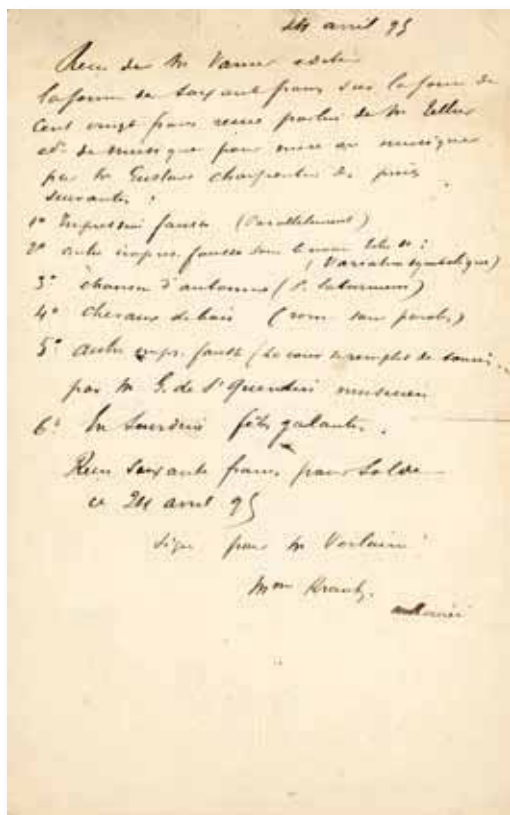 24 avril 95
Recu de M Vanier editeur
la somme de Soixante francs sur la somme de
Cent vingt francs remis par lui de M Tellier
ed. de musique pour mise en musique
par M Gustave Charpentier des pièces
suivantes :
1º Impression fausse (Parallelement)
2º autre impres. fausse sous le nouveau titre de :
(Variation symbolique)
3º chanson d'automne (P. Saturniens)
4º Chevaux de bois (rom sans paroles)
5º autre impr. fausse (
par M G. de St Quentin musicien
6º En Sourdine fêtes galantes.
Recu Soixante francs pour Solde
ce 24 avril 95
Signé pour M Verlaine
Mme Krantz.